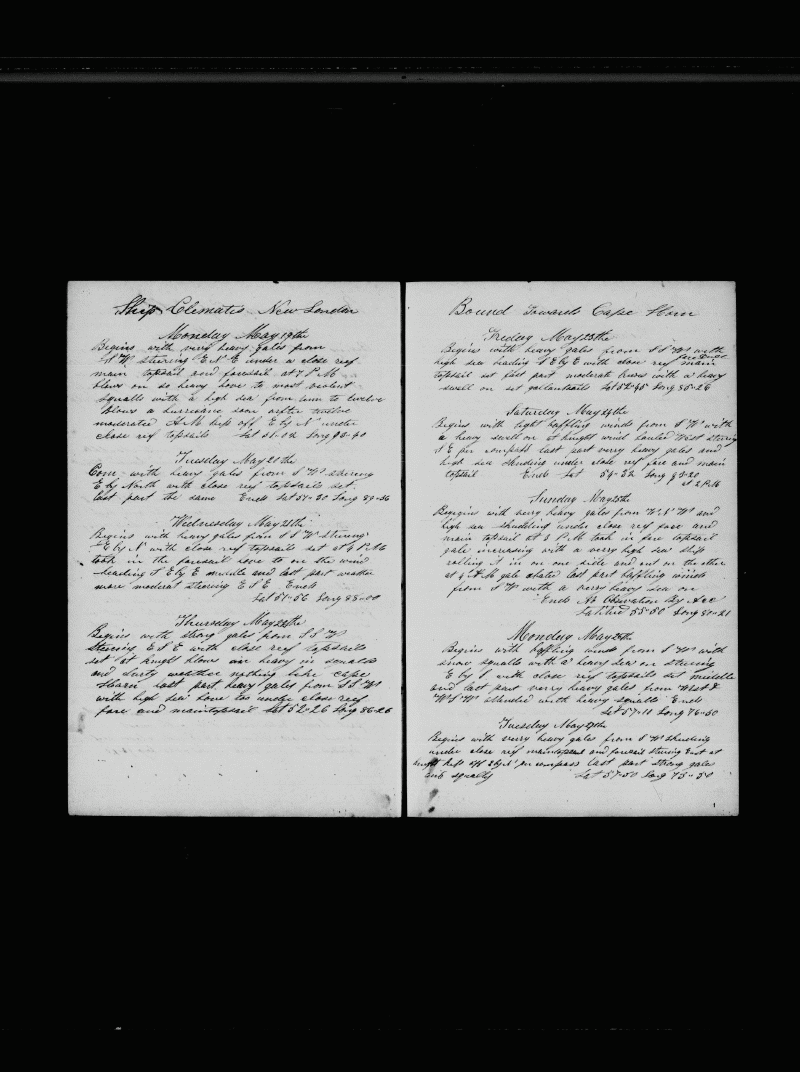 Ship Clematis New London
Monday May 19th
Begins with very heavy gales from
S W steering E N E under a close reef
main topsail and foresail at 7 P M
blows on so heavy hove to most violent
squalls with a high sea from ten to twelve
blows a hurricane soon after twelve
moderated A M kept off E by N under
close reef topsails Lat 51-12 Long
Tuesday May 20th
Com. with heavy gales from S W steering
E by North with close reef topsails set
last part the same Ends Lat 51-30 Long 89-36
Wednesday May 21st
Begins with heavy gales from S W steering
E by N with close reef topsails set at 4 P M
took in the foresail hove to on the wind
heading S E by E middle and last part weather
more moderat steering E S E Ends
Lat 51-56 Long 88-00
Thursday May 22th
Begins with strong gales from S S W
Steering E S E with close reef topsails
set at knight blows on heavy in squalls
and durty weather nothing like cape
Horn last part heavy gales from S S W
with high sea hove too under close reef
fore and maintopsail Lat 52-26 Long 86-26
Bound Towards Cape Horn
Friday May 23th
Begins with heavy gales from S S W with
high sea heading S E by E with close reef main
topsail set last part moderate with a heavy
swell on set gallantsails Lat 52-45 Long 85-26
Saturday May 24th
Begins with light baffling winds from S W with
a heavy swell on at knight wind hauled West steering
S E per compass last part very heavy gales and
high sea skudding under close reef fore and main
topsail Ends Lat 54-32 Long 83-20
at 2 P M
Sunday May 25th
Begins with very heavy gales from W N W and
high sea skudding under close reef fore and
main topsail at 8 P M took in fore topsail
gale increasing with a very high sea ship
rolling it in on one side and out on the other
at 4 A M gale abated last part baffling winds
from S W with a very heavy sea on
Ends No Obsivation By Acc
Latitud 55-50 Long 80-21
Monday May 26th
Begins with baffling winds from S W with
snow squalls with a heavy sea on steering
E by S with close reef topsails set middle
and last part very heavy gales from West &
W S W attended with heavy squalls Ends
Lat 57-10 Long 76-50
Tuesday May 27th
Begins with very heavy gales from S W skudding
under close reef maintopsail and foresail steering East at
knight kept off E by N per compass last part strong gales
and squally Lat 57-50 Long 73-50